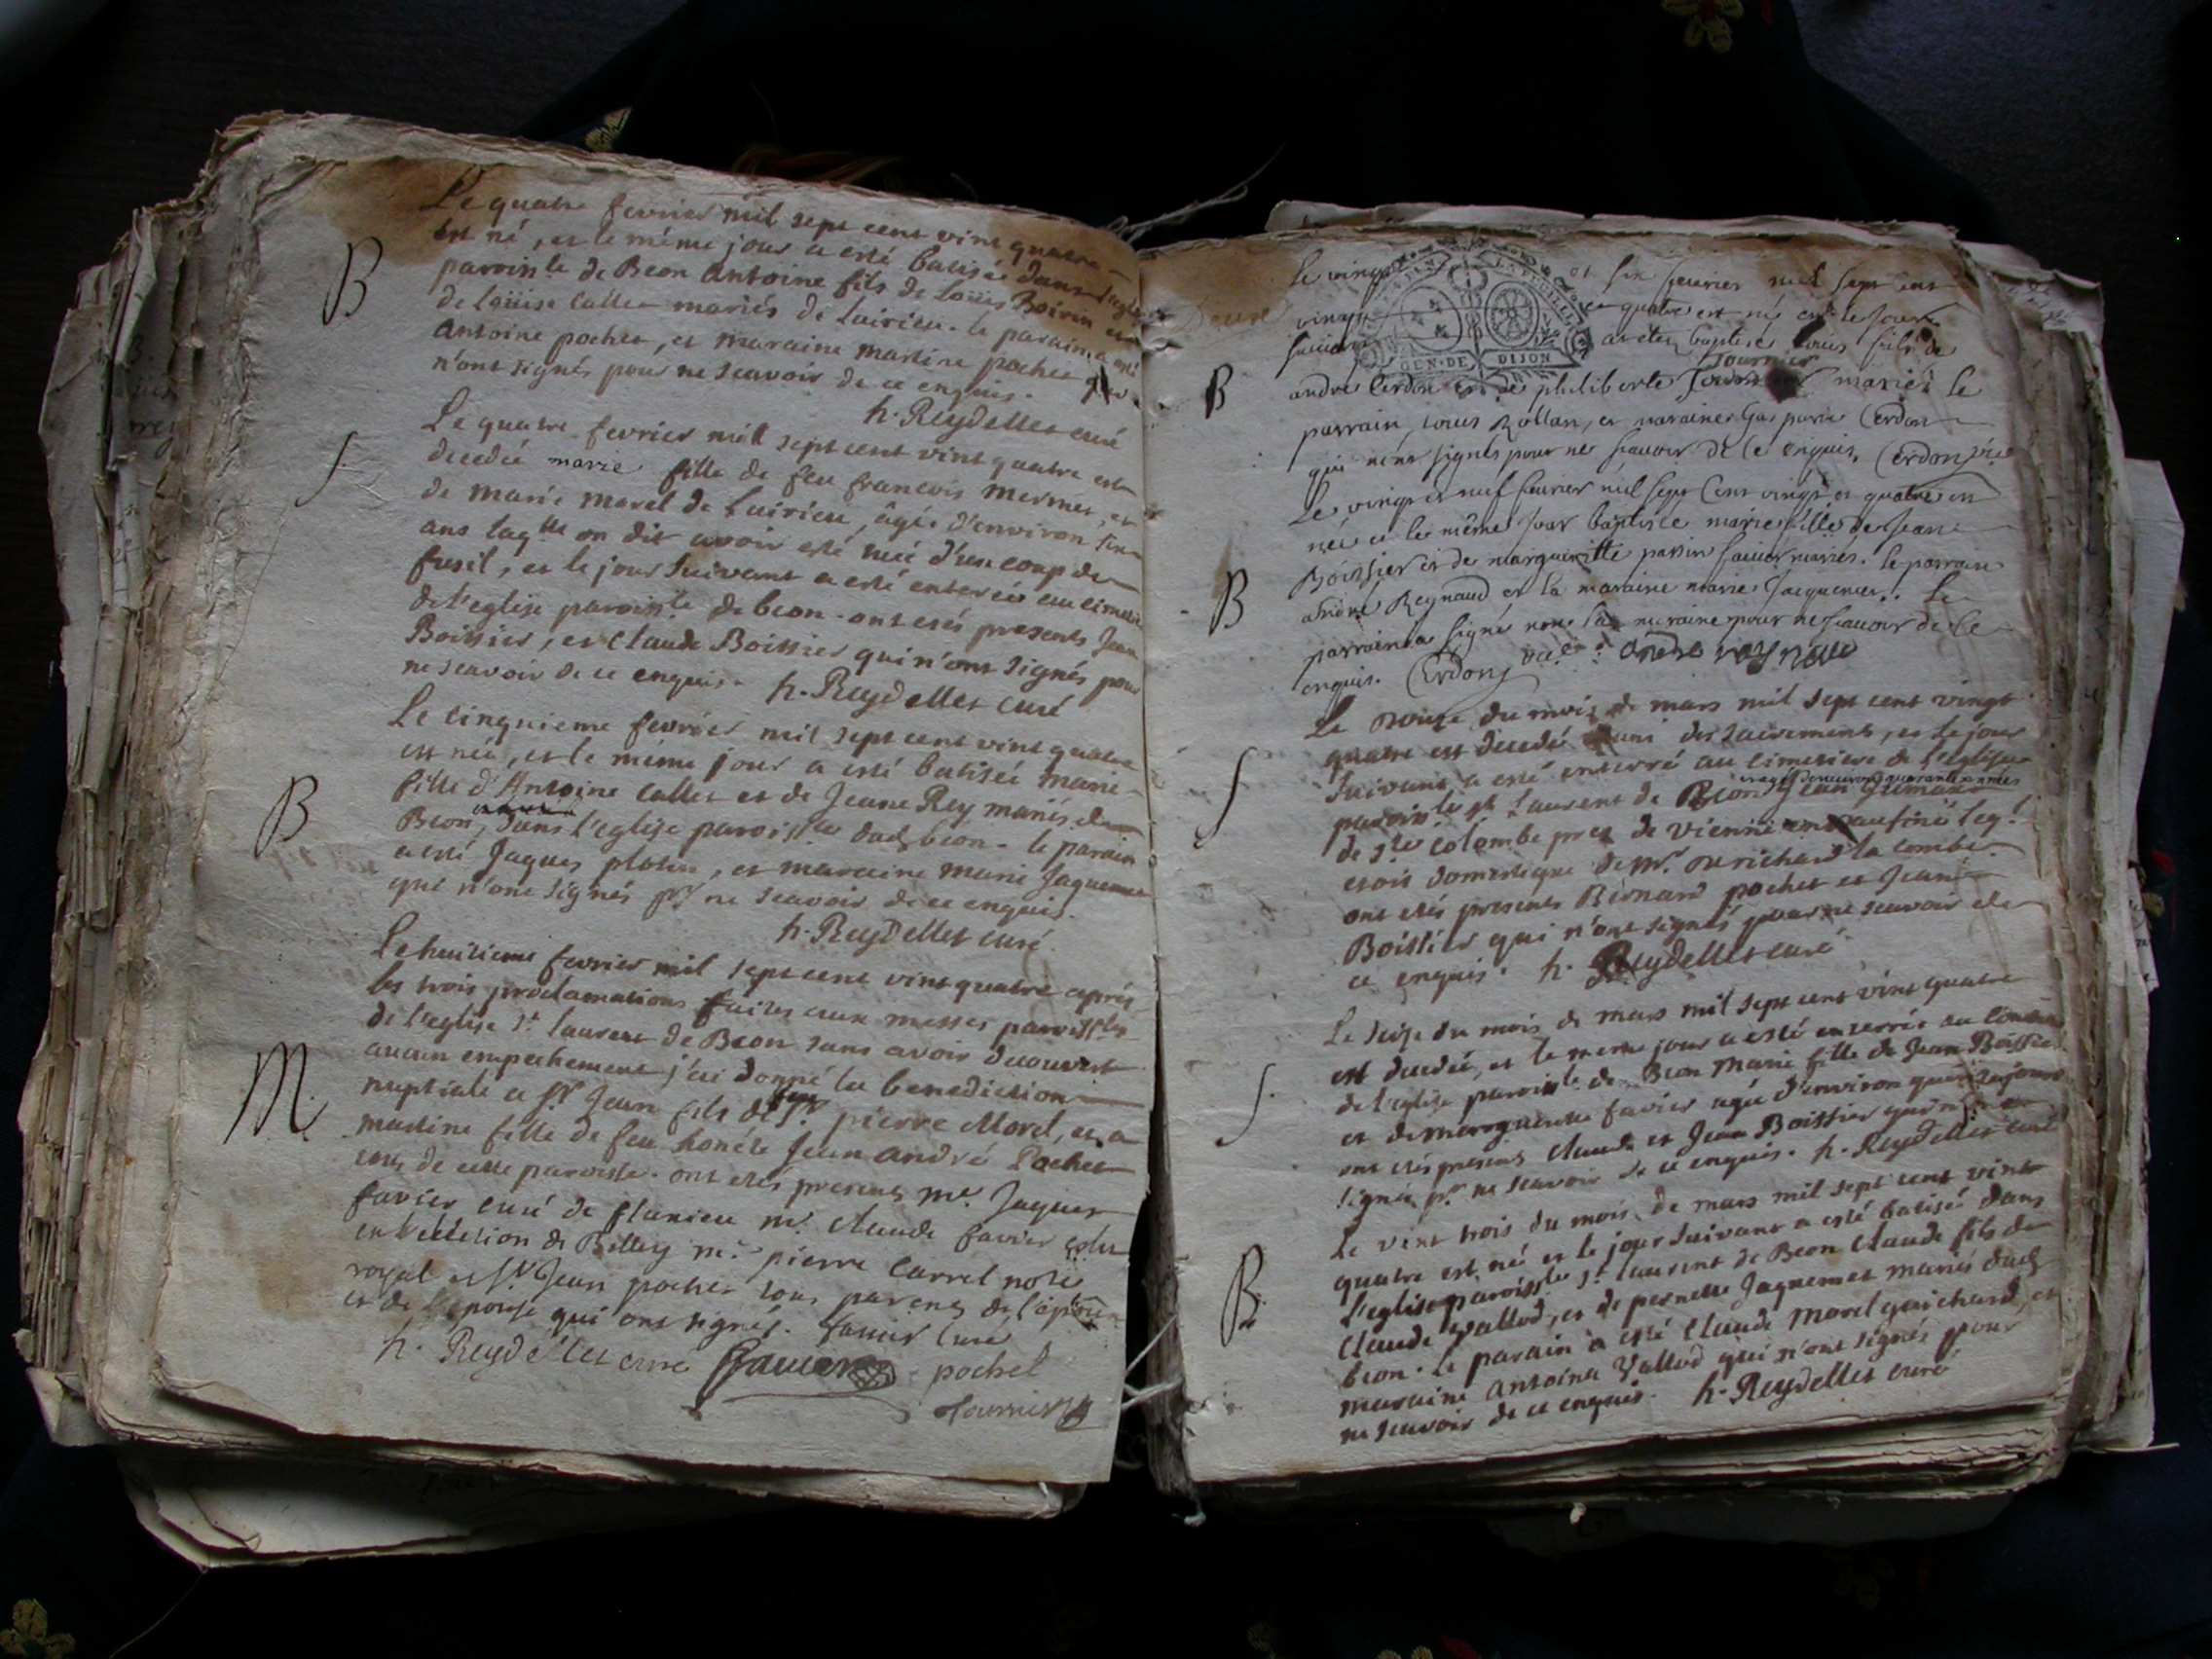 Le quatre fevrier mil sept cent vint quatre
est né, et le même jour a esté batisé dans l'eglise
B
paroiss.le de Beon Antoine fils de Loüis Boirin et
de Loüise Callet mariés de Luirieu. le parain a esté
Antoine pochet, et maraine martine pochet qui
n'ont signés pour ne scavoir de ce enquis.
h. Reydellet curé
Le quatre fevrier mill sept cent vint quatre est
S.
decedée marie fille de feu francois mermet, et
de marie morel de Luirieu, âgée d'environ
ans laq.lle on dit avoir esté tuée d'un coup de
fusil, et le jour suivant a esté enterée au cimetiere
de l'eglise paroiss.le de beon. ont etés presents Jean
Boissier, et Claude Boissier qui n'ont signés pour
ne scavoir de ce enquis. h. Reydellet curé
Le cinquieme fevrier mil sept cent vint quatre
est née, et le même jour a esté batisée marie
B
fille d'Antoine Callet et de Jeane Rey mariés de
Beon, dans l'eglise paroiss.le dud. beon. le parain
a esté Jaques , et maraine marie Jaquemet
qui n'ont signés p.r ne scavoir de ce enquis.
h. Reydellet curé.
Le huitieme fevrier mil sept cent vint quatre aprés
les trois proclamations faites aux messes paroiss.les
de l'eglise S.t laurent de Beon sans avoir decouvert
aucun empechement j'ai donné la benediction
M.
nuptiale a S.r Jean fils de feu S.r pierre Morel, et a
martine fille de feu honéte Jean André Pochet
tous de cette paroisse. ont etés presents m.e Jaques
favier curé de flaxieu m.r claude favier
en l'election de Belley m.e pierre Carrel not.re
royal et S.r Jean pochet tous parents de l'epoux
et de l'epouse qui ont signés. favier curé
h. Reydellet curé favier pochet
Le vingt et six feurier mil sept cent
vingt quatre est né et le jour
suivant a etez baptisé Louis fils de
Tournier
B
andré Cerdon et de philiberte mariés Le
GEN. DE DIJON
parrain Louis Rollan, et maraine parie Cerdon
qui nont signés pour ne scavoir de ce enquis. Cerdon vic.e
Le vingt et neuf feurier mil sept Cent vingt et quatre est
née et le même jour baptisée marie fille de Jean
B
Boissier et de marguerite favier mariés. le parrain
André Reynaud et la maraine marie Jacquemet. Le
parrain a signé non la maraine pour ne scavoir de ce
enquis. Cerdon vic.e André raynaud
Le douze du mois de mars mil sept cent vingt
quatre est decedé muni des sacrements, et le jour
S
suivant a esté enterré au cimetiere de l'eglise
et agé d'environ quarante années
paroiss.le S.t Laurent de Beon Jean
de S.te colombe pres de vienne
etoit domestique de m.r Derichard la combe.
ont etés presents Bernard pochet et Jean
Boissier qui n'ont signés pour ne scavoir de
ce enquis. h. Reydellet curé
Le seize du mois de mars mil sept cent vint quatre
est decedée, et le meme jour a esté enterrée au cimetiere
de l'eglise paroiss.le de Beon Marie fille de Jean Boissier
S.
et de marguerite favier agée d'environ quinze jours
ont etés presents claude et Jean Boissier qui n'ont
signés p.r ne scavoir de ce enquis. h. Reydellet curé
Le vint trois du mois de mars mil sept cent vint
quatre est né et le jour suivant a esté batisé dans
B.
l'eglise paroiss.le S.t laurent de Beon claude fils de
Claude Vallod, et de pernette Jaquemet mariés dud.
beon. le parain a esté Claude Morel guichard, et
maraine Antoina Vallod qui n'ont signés pour
ne scavoir de ce enquis. h. Reydellet curé